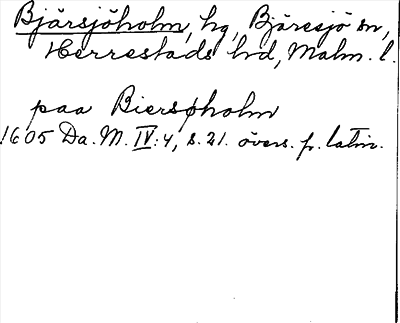 Bjärsjöholm, hg, Bjäresjö sn,
Herrestads hd, Malm. l.
paa Biersøholm
1605 Da. M. IV:4, s. 21. övers. fr. latin.